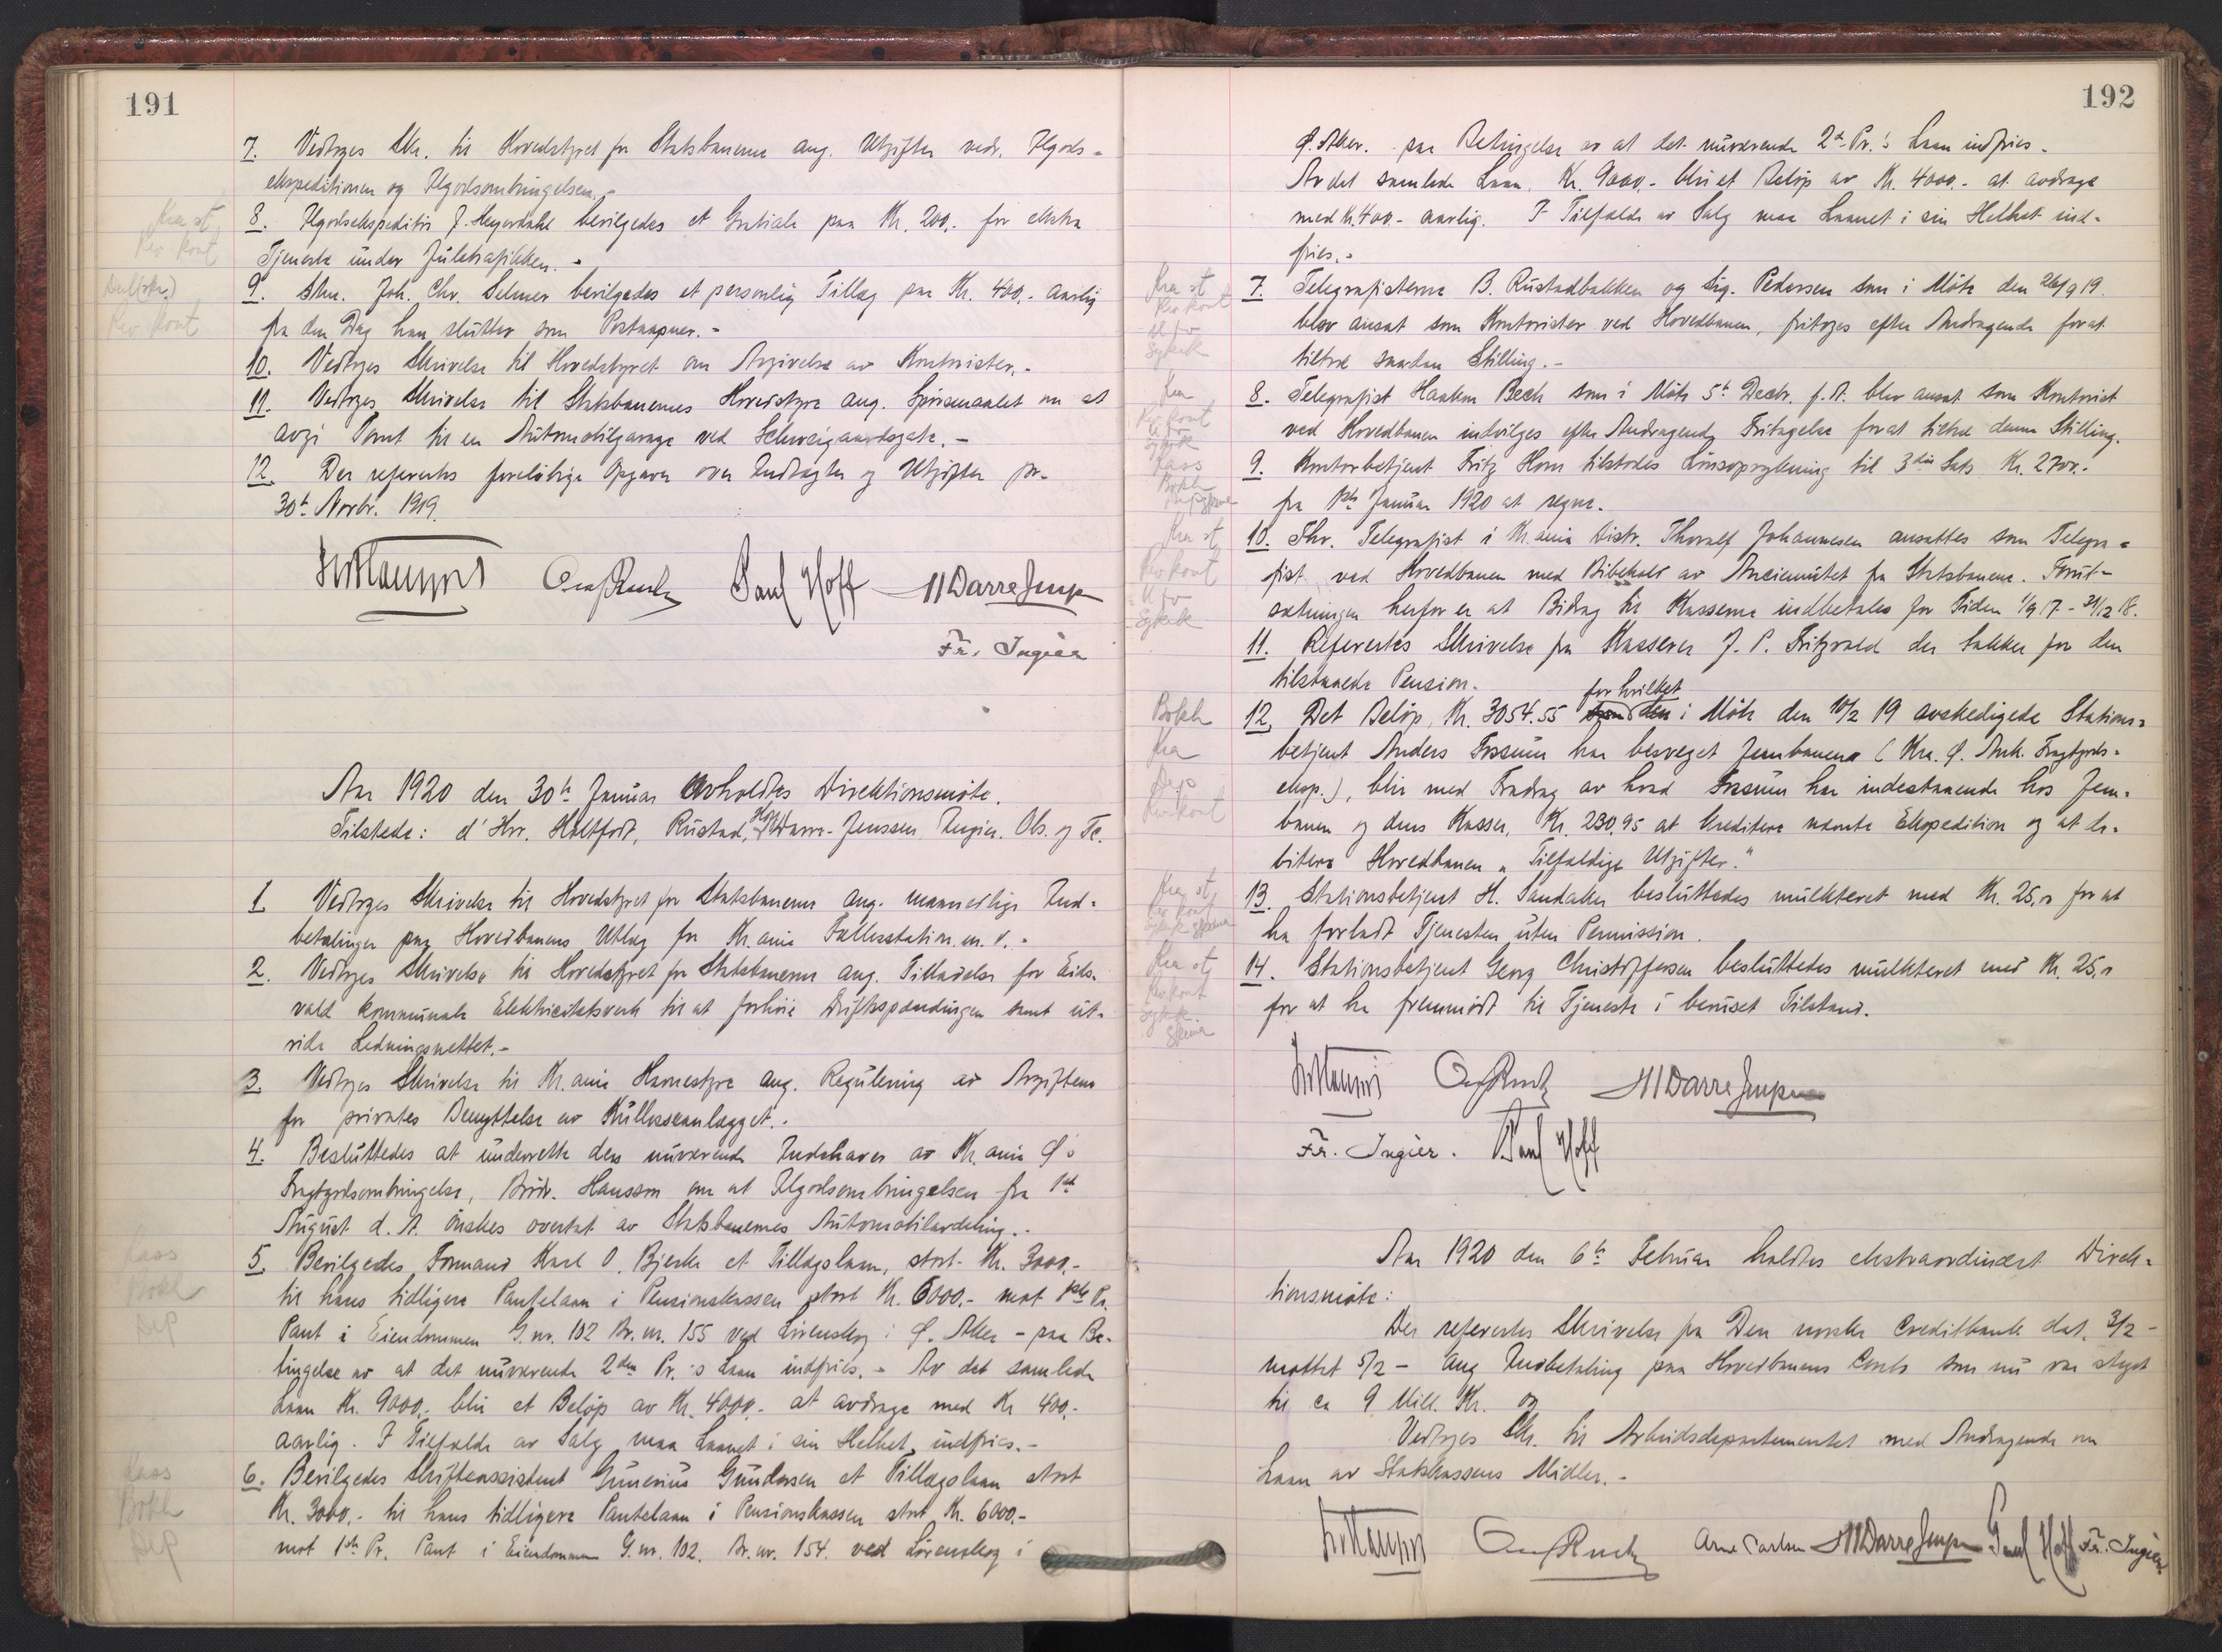 191
7. Vedtoges Skr. til Hovedstyret for Statsbanerne ang. Utgifter vedr. Ilgods-
ekspeditionen og Ilgodsombringelsen.-
Kra st
Rev kont
8. Ilgodsekspeditør J. Heyerdahl bevilgedes et Gratiale paa Kr. 200,- for ekstra
Tjeneste under Juletrafikken.-
Rev kont
9. Stm. Joh. Chr. Selmer bevilgedes et personlig Tillæg paa Kr. 400,- aarlig
fra den Dag han slutter som Postaapner.-
10. Vedtoges Skrivelse til Hovedstyret om Avgivelse av Kontorister.-
11. Vedtoges Skrivelse til Statsbanernes Hovedstyre ang. Spørsmaalet om at
avgi Tomt til en Automobilgarage ved Schweigaardsgate.-
12. Der refertes foreløbige Opgaver over Indtægter og Utgifter pr.
30te Novbr. 1919.
Paul Hoff
Darre Jenssen
Fr. Ingier
Aar 1920 den 30te Januar avholdtes Direktionsmøte.
Tilstede: d'Hrr. Holtfodt, Rustad, Hoff, Darre-Jenssen, Ingier. Obs. og Tc.
1. Vedtoges Skrivelse til Hovedstyret for Statsbanerne ang. maanedlige Ind-
betalinger paa Hovedbanens Utlæg for Kr.ania Fællesstation m.v.-
2. Vedtoges Skrivelse til Hovedstyret for Statsbanerne ang. Tilladelse for Eids-
vold kommunale Elektricitetsverk til at forhøie Driftsspændingen samt ut-
vide Ledningsnettet.-
3. Vedtoges Skrivelse til Kr.ania Havnestyre ang. Regulering av Avgiften
for privates Benyttelse av Kullosseanlægget.-
4. Besluttedes at underrette den nuværende Indehaver av Kr.ania Ø's
Fragtgodsombringelse, Brdr. Hansson om at Ilgodsombringelsen fra 1st
August d.A. ønskes overtat av Statsbanernes Automobilavdeling.-
Kass
Bokh
Dep
5. Bevilgedes Formand Karl O. Bjerke et Tillægslaan, stort Kr. 3000,-
til hans tidligere Pantelaan i Pensionskassen stort Kr. 6000,- mot 1ste Pr.
Pant i Eiendommen G.nr. 102 Br.nr. 155 ved Lørenskog i Ø. Aker - paa Be-
tingelse av at det nuværende 2den Pr.'s Laan indfries.- Av det samlede
Laan Kr. 9000,- blir et Beløp av Kr. 4000,- at avdrage med Kr 400,-
aarlig. I Tilfælde av Salg maa Laanet i sin Helhet indfries.-
Kass
Bokh
Dep
6. Bevilgedes Skiftassistent Gunerius Gundersen et Tillægslaan stort
Kr. 3000,- til hans tidligere Pantelaan i Pensionskassen stort Kr. 6000,-
mot 1ste Pr. Pant i Eiendommen G.nr. 102. Br.nr. 154. ved Lørenskog i
192
Ø. Aker. - paa Betingelse av at det nuværende 2d Pr.'s Laan indfries.
Av det samlede Laan, Kr. 9000,- blir et Beløp av Kr. 4000,- at avdrage
med Kr. 400,- aarlig. I Tilfælde av Salg maa Laanet i sin Helhet ind-
fries.-
Kra st
Rev kont
Sykek
7. Telegrafisterne B. Rustadbakken og Sig. Pedersen som i Møte den 26/9 19.
blev ansat som Kontorister ved Hovedbanen, fritoges efter Andragende forat
tiltræ saadan Stilling.-
Kra
Rev kont
Sykek
8. Telegrafist Haakon Bech som i Møte 5te Decbr. f.A. blev ansat som Kontorist
ved Hovedbanen indvilges efter Andragende Fritagelse forat tiltræ denne Stilling.
Kass
Bokh
9. Kontorbetjent Fritz Horn tilstodes Lønsoprykning til 3die Sats Kr. 2700.-
fra 1ste Januar 1920 at regne.
Kra st
Rev kont
Sykek
10. Fhv. Telegrafist i Kr.ania Distr. Thoralf Johannesen ansattes som Telegra-
fist ved Hovedbanen med Bibehold av Ancienitet fra Statsbanene. Forut-
sætningen herfor er at Bidrag til Kasserne indbetales for Tiden 1/9 17 - 31/12 18.
11. Refertes Skrivelse fra Kasserer J. P. Fritzvold der takker for den
tilstaaede Pension.
for hvilket
Bokh
Kra
Rev kont
12. Det Beløp, Kr. 3054.55 den i Møte den 10/2 19 avskedigede Stations-
betjent Anders Fossum har besveget Jernbanene (Kra. Ø. Ank. Fragtgods-
eksp.), blir med Fradrag av hvad Fossum har indestaaende hos Jern-
banen og dens Kasser, Kr. 230,95 at kreditere nævnte Ekspedition og at de-
bitere Hovedbanen „Tilfældige Utgifter."
Kra st
Rev kont
Sykek
13. Stationsbetjent H. Sandaker besluttedes mulkteret med Kr. 25,- for at
ha forladt Tjenesten uten Permission.
Kra st
Rev kont
Sykek
14. Stationsbetjent Georg Christoffersen besluttedes mulkteret med Kr. 25,-
for at ha fremmødt til Tjeneste i beruset Tilstand.
Darre Jenssen
Fr. Ingier. Paul Hoff
Aar 1920 den 6te Februar holdtes ekstraordinært Direk-
tionsmøte:
Der refertes Skrivelse fra Den norske Creditbank dat. 3/2 -
mottat 5/2 - ang Indbetaling paa Hovedbanens Conto som nu var steget
til ca 9 Mill. Kr. og
Vedtoges Skr. til Arbeidsdepartementet med Andragende om
Laan av Statskassens Midler.-
Arne Carlsen Darre Jenssen Paul Hoff Fr. Ingier